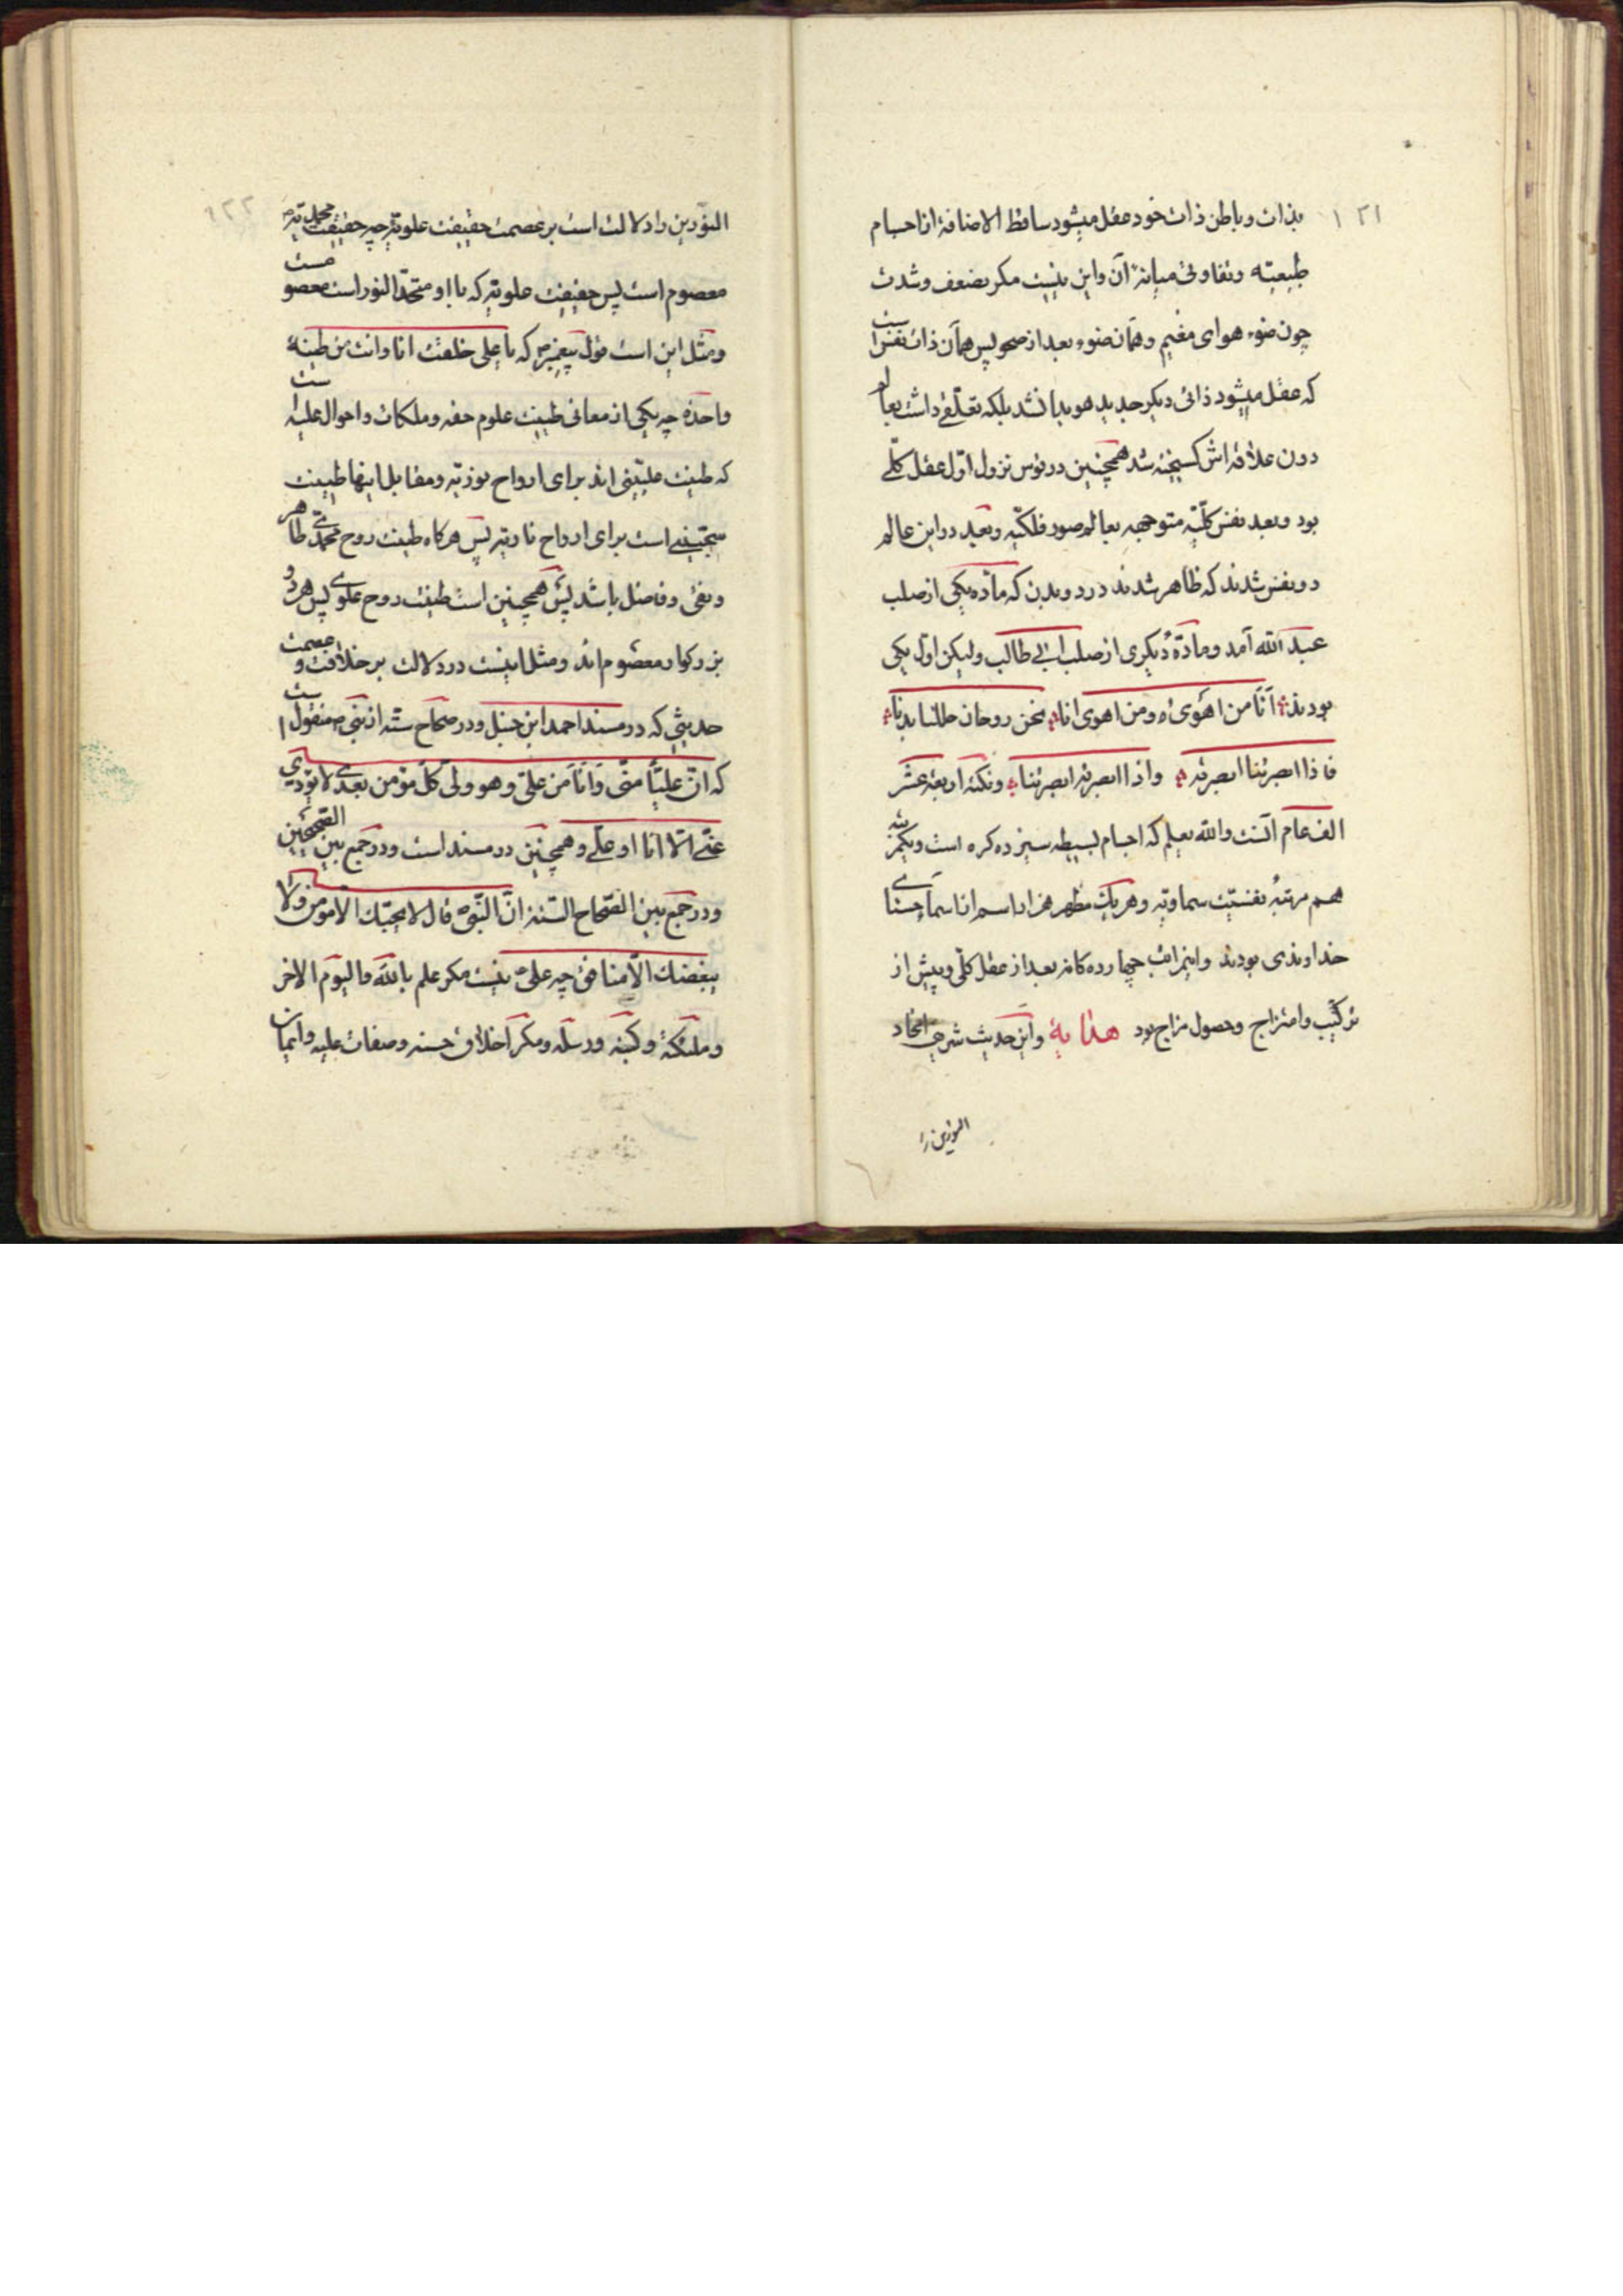 ۱۲۱
بذات و باطن ذات خود عقل میشود ساقط الاضافة از اجسام
طبیعیّه و تفاوتی میانهٔ آن و این نیست مکر بضعف و شدت
چون ضوء هوای مغیم و همان ضوء بعد از صحو پس همان ذات نفس است
که عقل میشود ذاتی دیکر جدید هویدا نشد بلکه تعلّقی داشت بعالم
دون علاقه اش کسیخته شد همچنین در قوس نزول اوّل عقل کلّے
بود و بعد نفس کلّیّه متوجهه بعالم صور فلکیّه و بعد در این عالم
دو نفس شدند که ظاهر شدند در دو بدن که مادّه یکی از صلب
عبد الله آمد و مادّهٔ دیکری از صلب ابی طالب ولیکن اول یکی
بودند انا من اهوی و من اهوی انا نحن روحان حللنا بدنا
فاذا ابصرتنا ابصرته و اذا ابصرته ابصرتنا و نکتهٔ اربعة عشر
الف عام آنست والله یعلم که اجسام بسیطه سیزده کره است و یکمرتبه
هم مرتبهٔ نفسیّت سماویّه و هر یک مظهر هزار اسم از اسماے حسنای
خداوندی بودند و اینمراتب چهارده کانه بعد از عقل کلّی و پیش از
ترکیب و امتزاج و حصول مزاج بود هدایة و این حدیث شریف اتحاد
النورین را
۱۲۲
النورین را دلالت است بر عصمت حقیقت علویّه چه حقیقت محمدیّه
معصوم است پس حقیقت علویّه که با او متحدّ النور است معصومست
و مثل این است قول پیغمبر ص که یا علی خلقت انا و انت من طینة
واحدة چه یکی از معانی طینت علوم حقه و ملکات و احوال علیه است
که طینت علیّینی اند برای ارواح نوریّه و مقابل اینها طینت
سجّینی است برای ارواح ناریّه پس هرکاه طینت روح محمّدی طاهر
و نقی و فاضل باشد پس همچنین است طینت روح علوی پس هر دو
بزرکوار معصوم اند و مثل اینست در دلالت بر خلافت و عصمت
حدیثی که در مسند احمد ابن حنبل و در صحاح ستّه از نبی ص منقول است
که انّ علیّاً منّی و انا من علیّ و هو ولیّ کلّ مؤمن بعدی لا یؤدّی
عنّی الّا انا او علی و همچنین در مسند است و در جمع بین الصّحیحین
و در جمع بین الصّحاح السّتّه ان النّبیّ قال لا یحبّک الّا مؤمن ولا
یبغضک الّا منافق چه علیّ نیست مکر علم بالله و الیوم الاخر
و ملئکته و کتبه و رسله و مکر اخلاق حسنه و صفات علیه و ایمان